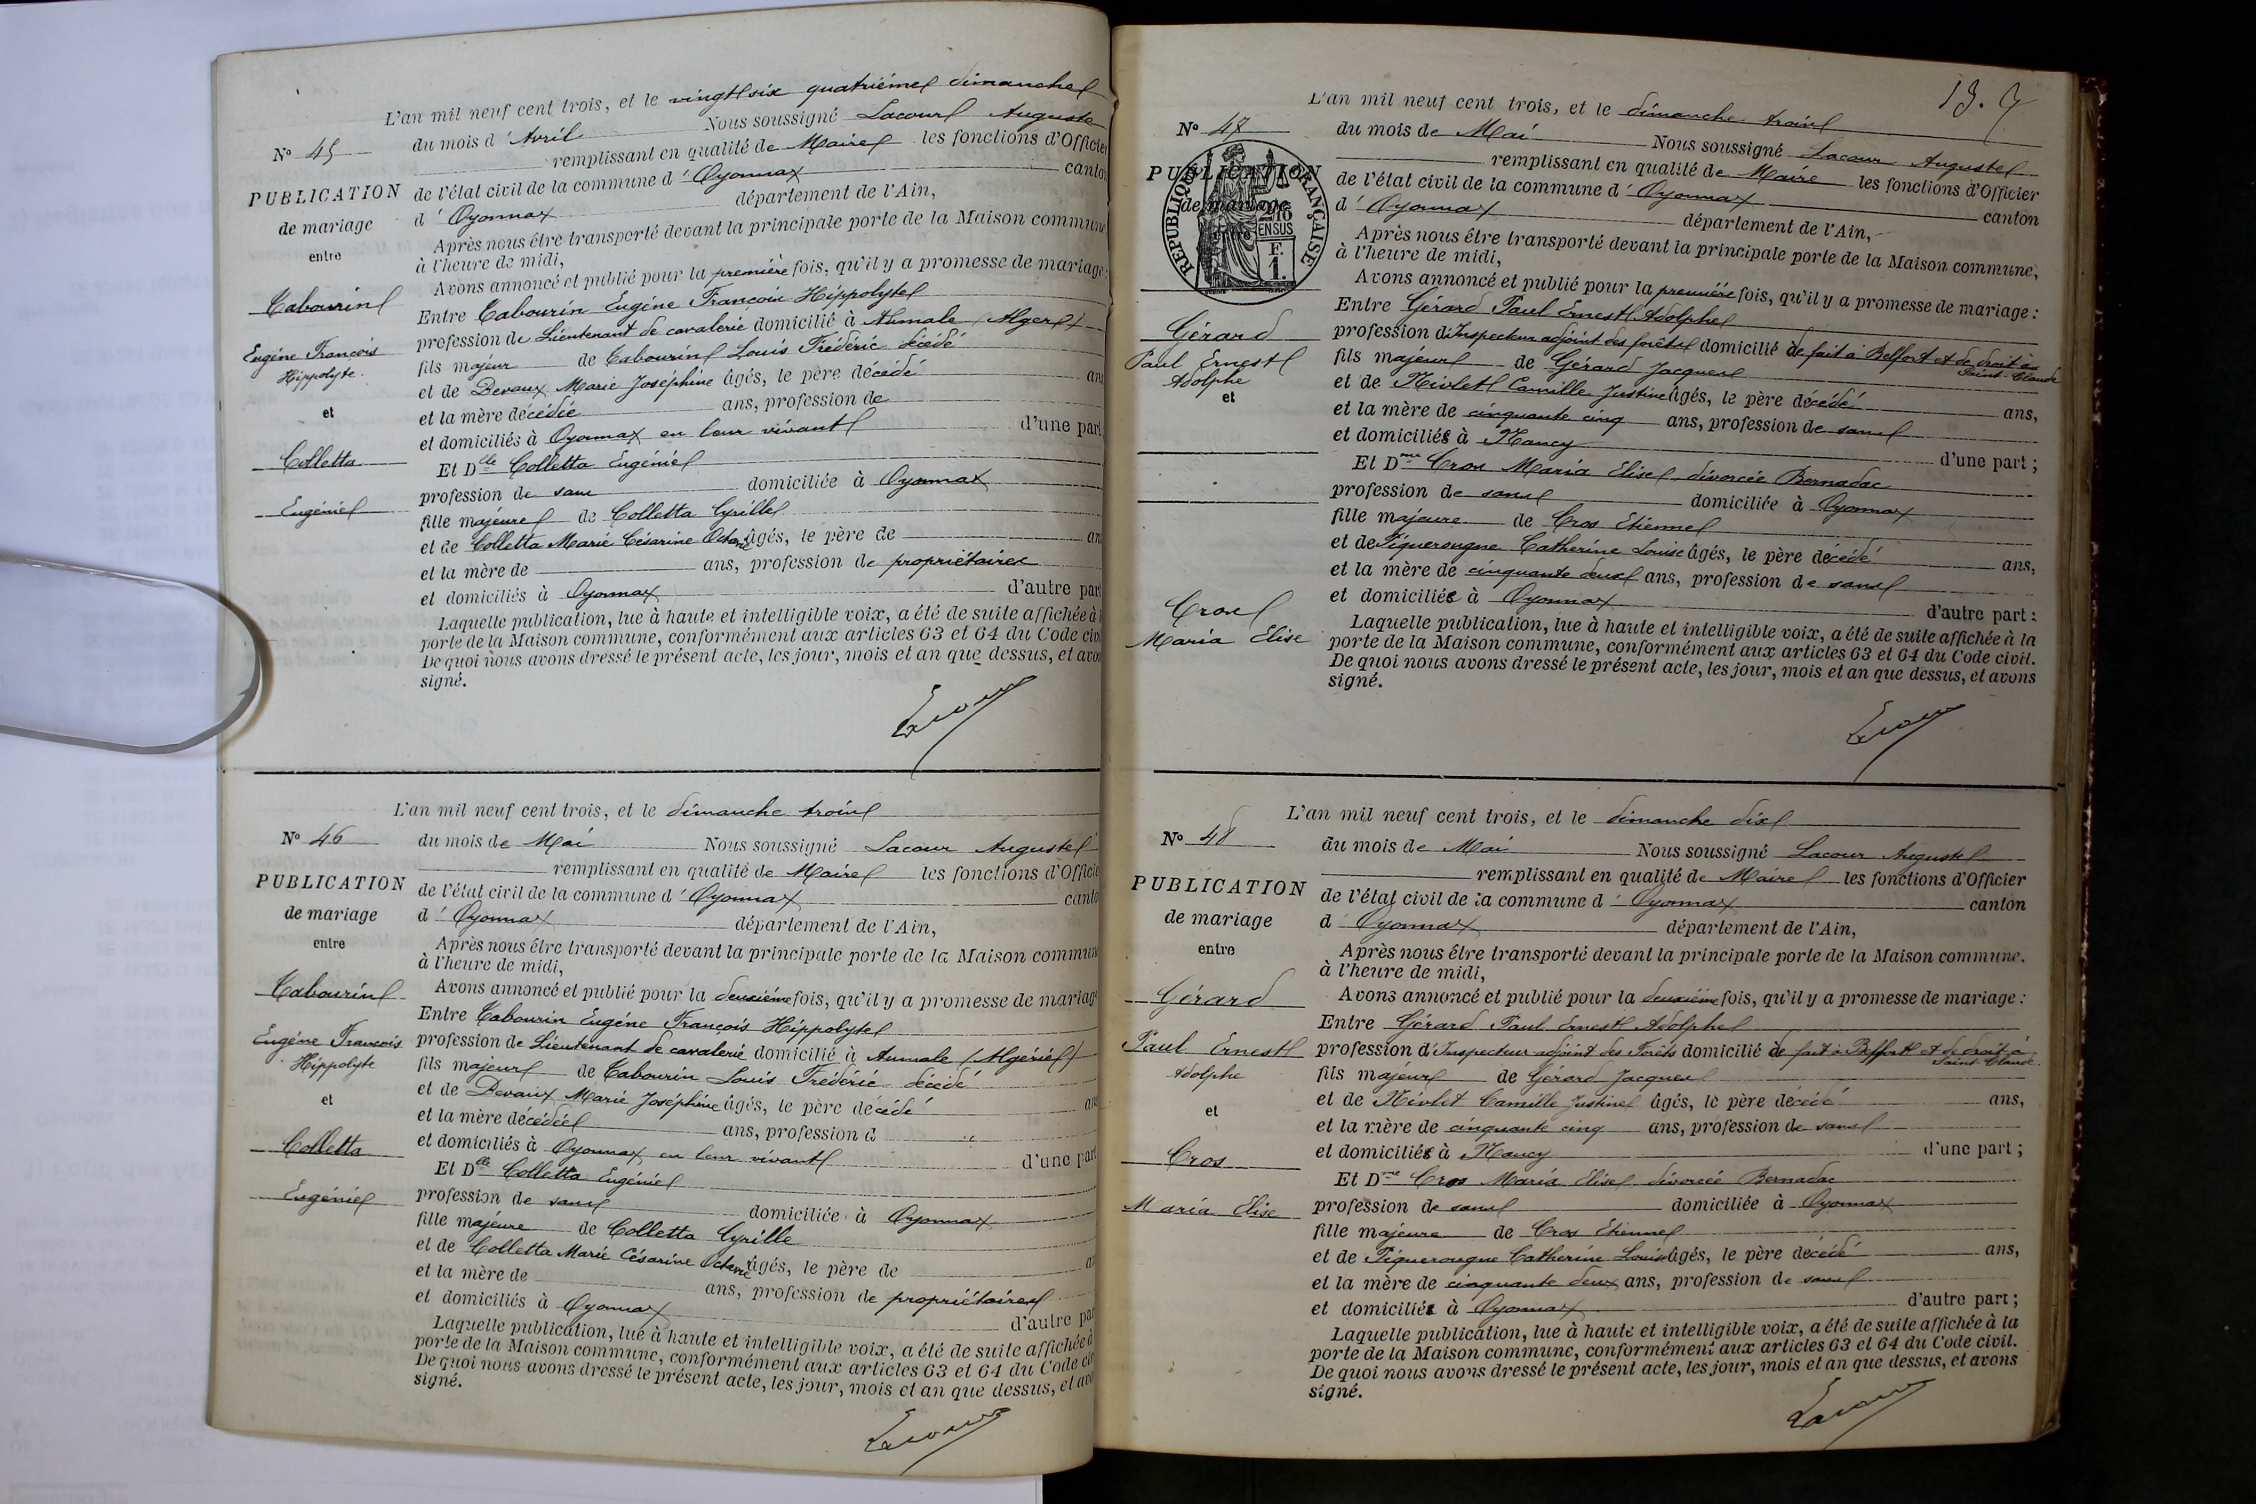 L'an mil neuf cent trois, et le vingt six quatrième dimanche
du mois d' Avril Nous soussigné Lacour Auguste
remplissant en qualité de Maire les fonctions d'Officier
de l'état civil de la commune d' Oyonnax canton
d' Oyonnax département de l'Ain,
Après nous être transporté devant la principale porte de la Maison commune
à l'heure de midi,
Avons annoncé et publié pour la première fois, qu'il y a promesse de mariage:
Entre Cabourin Eugène François Hippolyte
profession de Lieutenant de cavalerie domicilié à Aumale (Alger)
fils majeur de Cabourin Louis Frédéric décédé
et de Devaux Marie Joséphine âgés, le père décédé ans
et la mère décédée ans, profession de
et domiciliés à Oyonnax en leur vivant d'une part
Et Dlle Colletta Eugénie
profession de sans domiciliée à Oyonnax
fille majeure de Colletta Cyrille
et de Colletta Marie Césarine Octavie âgés, le père de an
et la mère de ans, profession de propriétaires
et domiciliés à Oyonnax d'autre par
Laquelle publication, lue à haute et intelligible voix, a été de suite affichée à l
porte de la Maison commune, conformément aux articles 63 et 64 du Code civi
De quoi nous avons dressé le présent acte, les jour, mois et an que dessus, et avon
signé.
Lacour
N° 45
PUBLICATION
de mariage
entre
Cabourin
Eugène François
Hippolyte
et
Colletta
Eugénie
L'an mil neuf cent trois, et le dimanche trois
du mois de Mai Nous soussigné Lacour Auguste
remplissant en qualité de Maire les fonctions d'Officie
de l'état civil de la commune d' Oyonnax canto
d' Oyonnax département de l'Ain,
Après nous être transporté devant la principale porte de la Maison commun
à l'heure de midi,
Avons annoncé et publié pour la deuxième fois, qu'il y a promesse de mariag
Entre Cabourin Eugène François Hippolyte
profession de Lieutenant de cavalerie domicilié à Aumale (Algérie)
fils majeur de Cabourin Louis Frédéric décédé
et de Devaux Marie Joséphine âgés, le père décédé an
et la mère décédée ans, profession d
et domiciliés à Oyonnax en leur vivant d'une part
Et Dlle Colletta Eugénie
profession de sans domiciliée à Oyonnax
fille majeure de Colletta Cyrille
et de Colletta Marie Césarine Octavie âgés, le père de a
et la mère de ans, profession de propriétaires
et domiciliés à Oyonnax d'autre par
Laquelle publication, lue à haute et intelligible voix, a été de suite affichée à
porte de la Maison commune, conformément aux articles 63 et 64 du Code ci
De quoi nous avons dressé le présent acte, les jour, mois et an que dessus, et avo
signé.
Lacour
N° 46
PUBLICATION
de mariage
entre
Cabourin
Eugène François
Hippolyte
et
Colletta
Eugénie
L'an mil neuf cent trois, et le dimanche trois
du mois de Mai Nous soussigné Lacour Auguste
remplissant en qualité de Maire les fonctions d'Officier
de l'état civil de la commune d' Oyonnax canton
d' Oyonnax département de l'Ain,
Après nous être transporté devant la principale porte de la Maison commune,
à l'heure de midi,
Avons annoncé et publié pour la première fois, qu'il y a promesse de mariage:
Entre Gérard Paul Ernest Adolphe
profession d'Inspecteur adjoint des forêts domicilié de fait à Belfort et de droit à
Saint-Claude
fils majeur de Gérard Jacques
et de Nivlet Camille Justine âgés, le père décédé ans,
et la mère de cinquante cinq ans, profession de sans
et domiciliés à Nancy d'une part;
Et Dme Cros Maria Elise divorcée Bernadac
profession de sans domiciliée à Oyonnax
fille majeure de Cros Etienne
et de Piquerougne Catherine Louise âgés, le père décédé ans,
et la mère de cinquante deux ans, profession de sans
et domiciliés à Oyonnax d'autre part:
Laquelle publication, lue à haute et intelligible voix, a été de suite affichée à la
porte de la Maison commune, conformément aux articles 63 et 64 du Code civil.
De quoi nous avons dressé le présent acte, les jour, mois et an que dessus, et avons
signé.
Lacour
N° 47
PUBLICATION
de mariage
entre
REPUBLIQUE FRANÇAISE
2/10
EN SUS
F.
1.
Gérard
Paul Ernest
Adolphe
et
Cros
Maria Elise
L'an mil neuf cent trois, et le dimanche dix
du mois de Mai Nous soussigné Lacour Auguste
remplissant en qualité de Maire les fonctions d'Officier
de l'état civil de la commune d' Oyonnax canton
d' Oyonnax département de l'Ain,
Après nous être transporté devant la principale porte de la Maison commune.
à l'heure de midi,
Avons annoncé et publié pour la deuxième fois, qu'il y a promesse de mariage:
Entre Gérard Paul Ernest Adolphe
profession d'Inspecteur adjoint des Forêts domicilié de fait à Belfort et de droit à
Saint-Claude
fils majeur de Gérard Jacques
et de Nivlet Camille Justine âgés, le père décédé ans,
et la mère de cinquante cinq ans, profession de sans
et domiciliés à Nancy d'une part;
Et Dme Cros Maria Elise divorcée Bernadac
profession de sans domiciliée à Oyonnax
fille majeure de Cros Etienne
et de Piquerougne Catherine Louise âgés, le père décédé ans,
et la mère de cinquante deux ans, profession de sans
et domiciliés à Oyonnax d'autre part;
Laquelle publication, lue à haute et intelligible voix, a été de suite affichée à la
porte de la Maison commune, conformément aux articles 63 et 64 du Code civil.
De quoi nous avons dressé le présent acte, les jour, mois et an que dessus, et avons
signé.
Lacour
N° 48
PUBLICATION
de mariage
entre
Gérard
Paul Ernest
Adolphe
et
Cros
Maria Elise